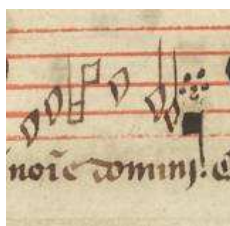 noīe domini.